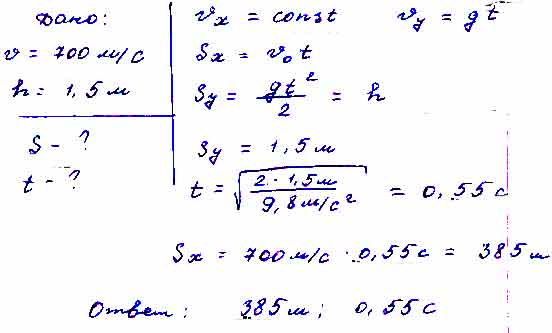 Дано:
v = 700 м/с
h = 1,5 м
S - ?
t - ?
vx = const vy = gt
Sx = v₀t
Sy = gt²/2 = h
Sy = 1,5 м
t = √(2 · 1,5 м / 9,8 м/с²) = 0,55 с
Sx = 700 м/с · 0,55 с = 385 м
Ответ: 385 м; 0,55 с